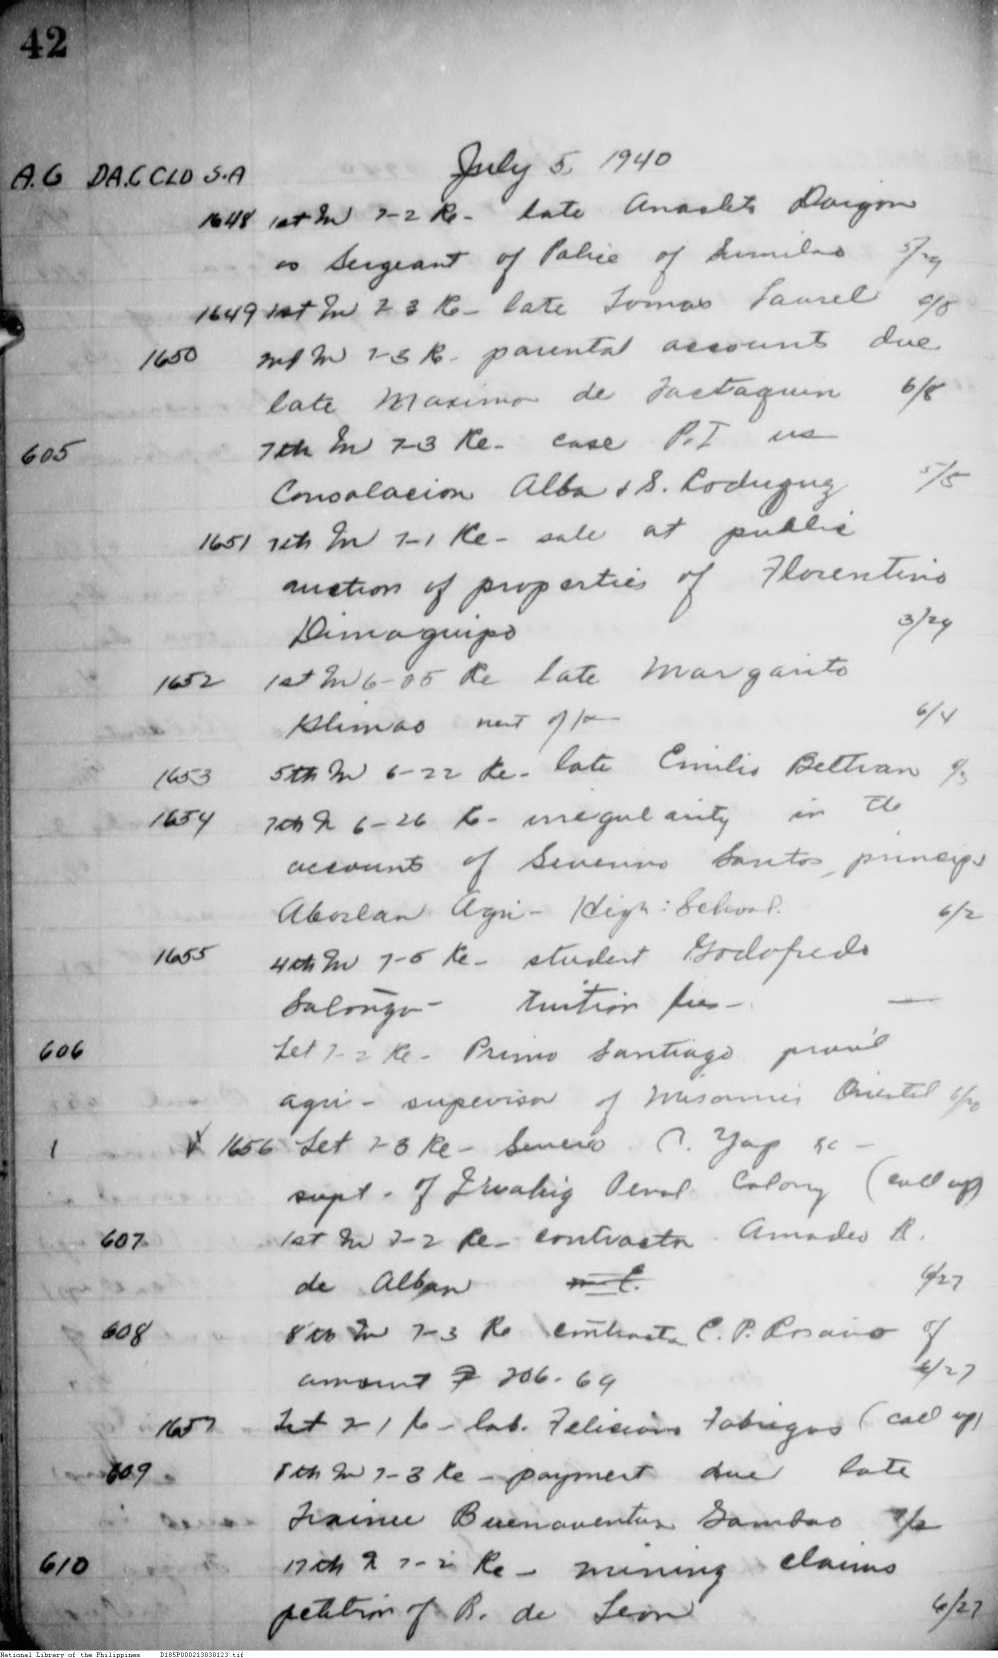 42
A.G DA.G CLD S.A July 5, 1940
1648 1st In 7-2 Re- late Anacleto Daigon
as Sergeant of Police of Sumilao 5/29
1649 1st In 7-3 Re- late Tomas Laurel 6/8
1650 2nd In 7-3 Re- parental accounts due
late Maximo de 6/8
605 7th In 7-3 Re- case P.I vs
Consolacion Alba & S. Rodriguez 5/5
1651 7th In 7-1 Re- sale at public
auction of properties of Florentino
Dimaguipo 3/29
1652 1st In 6-05 Re late Margarito
next of 6/4
1653 5th In 6-22 Re- late Emilio Beltran
1654 7th In 6-26 Re- irregularity in the
accounts of Severino Santos, principal
Aborlan Agri- High: School. 6/2
1655 4th In 7-5 Re- student Godofredo
Salonga- tuition fees- —
606 Let 7-2 Re- Primo Santiago prov'l
agri- supervisor of Misamis Oriental 6/20
1 1656 Let 7-3 Re- Severo P. Yap
supt. of Iwahig Penal Colony (call up)
607 1st In 7-2 Re- contractor Amadeo R.
de Alban 6/27
608 8th In 7-3 Re contractor C. P. Rosario of
amount ₱ 206.69 6/27
1657 Let 7-1 Re- lab. Feliciano Fabrigas (call up)
609 8th In 7-3 Re- payment due late
Trainee Buenaventura Gambao 7/2
610 17th In 7-2 Re- mining claims
petition of B. de Leon 6/27
National Library of the Philippines D185P000213838123.tif